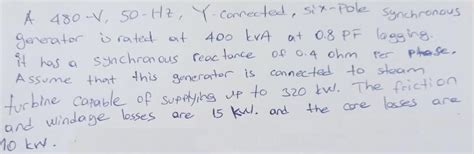 A 480-V, 50-Hz, Y-connected, six-pole synchronous
generator is rated at 400 kVA at 0.8 PF lagging.
it has a synchronous reactance of 0.4 ohm per phase.
Assume that this generator is connected to steam
turbine capable of supplying up to 320 kW. The friction
and windage losses are 15 kW. and the core losses are
10 kW.